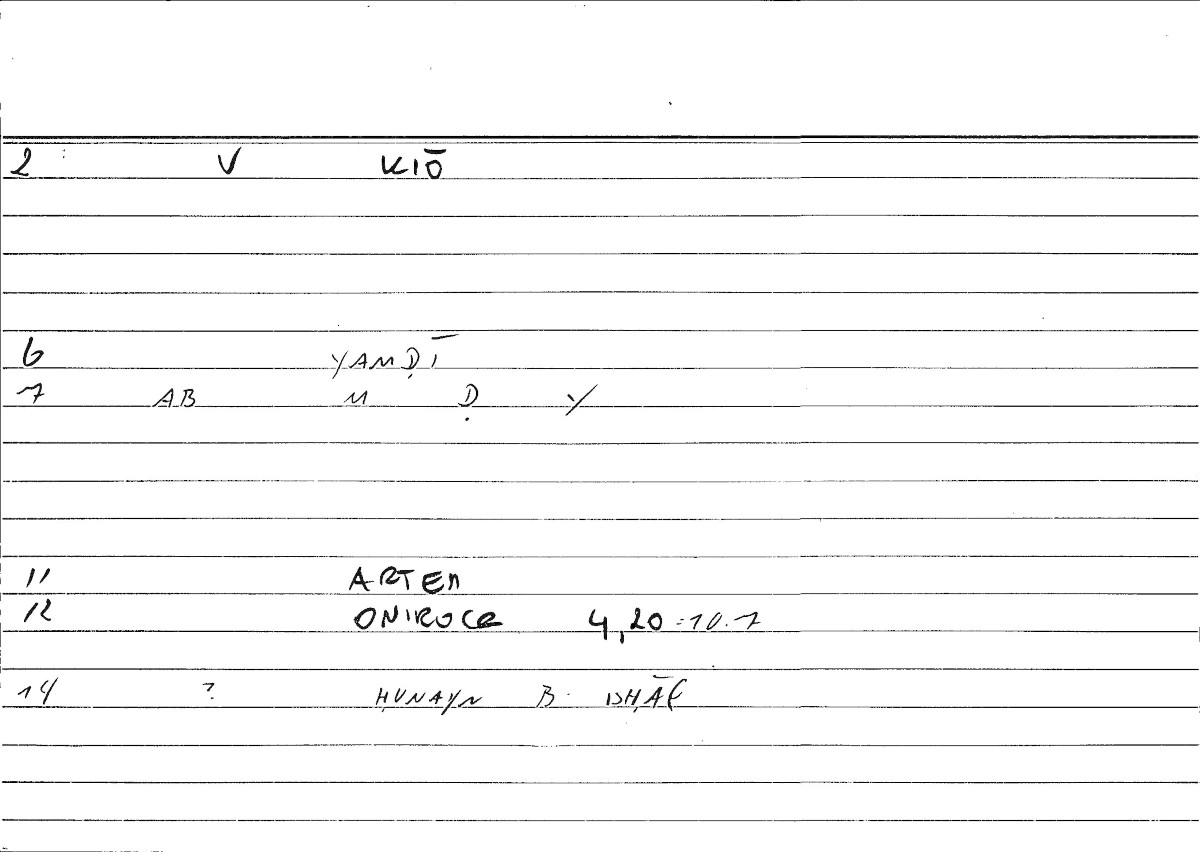 2 V KIŌ
6 YAMḌĪ
7 AB M Ḍ Y
11 ARTEM
12 ONIROCR 4,20 :10.7
14 ? ḤUNAYN B. ISḤĀQ